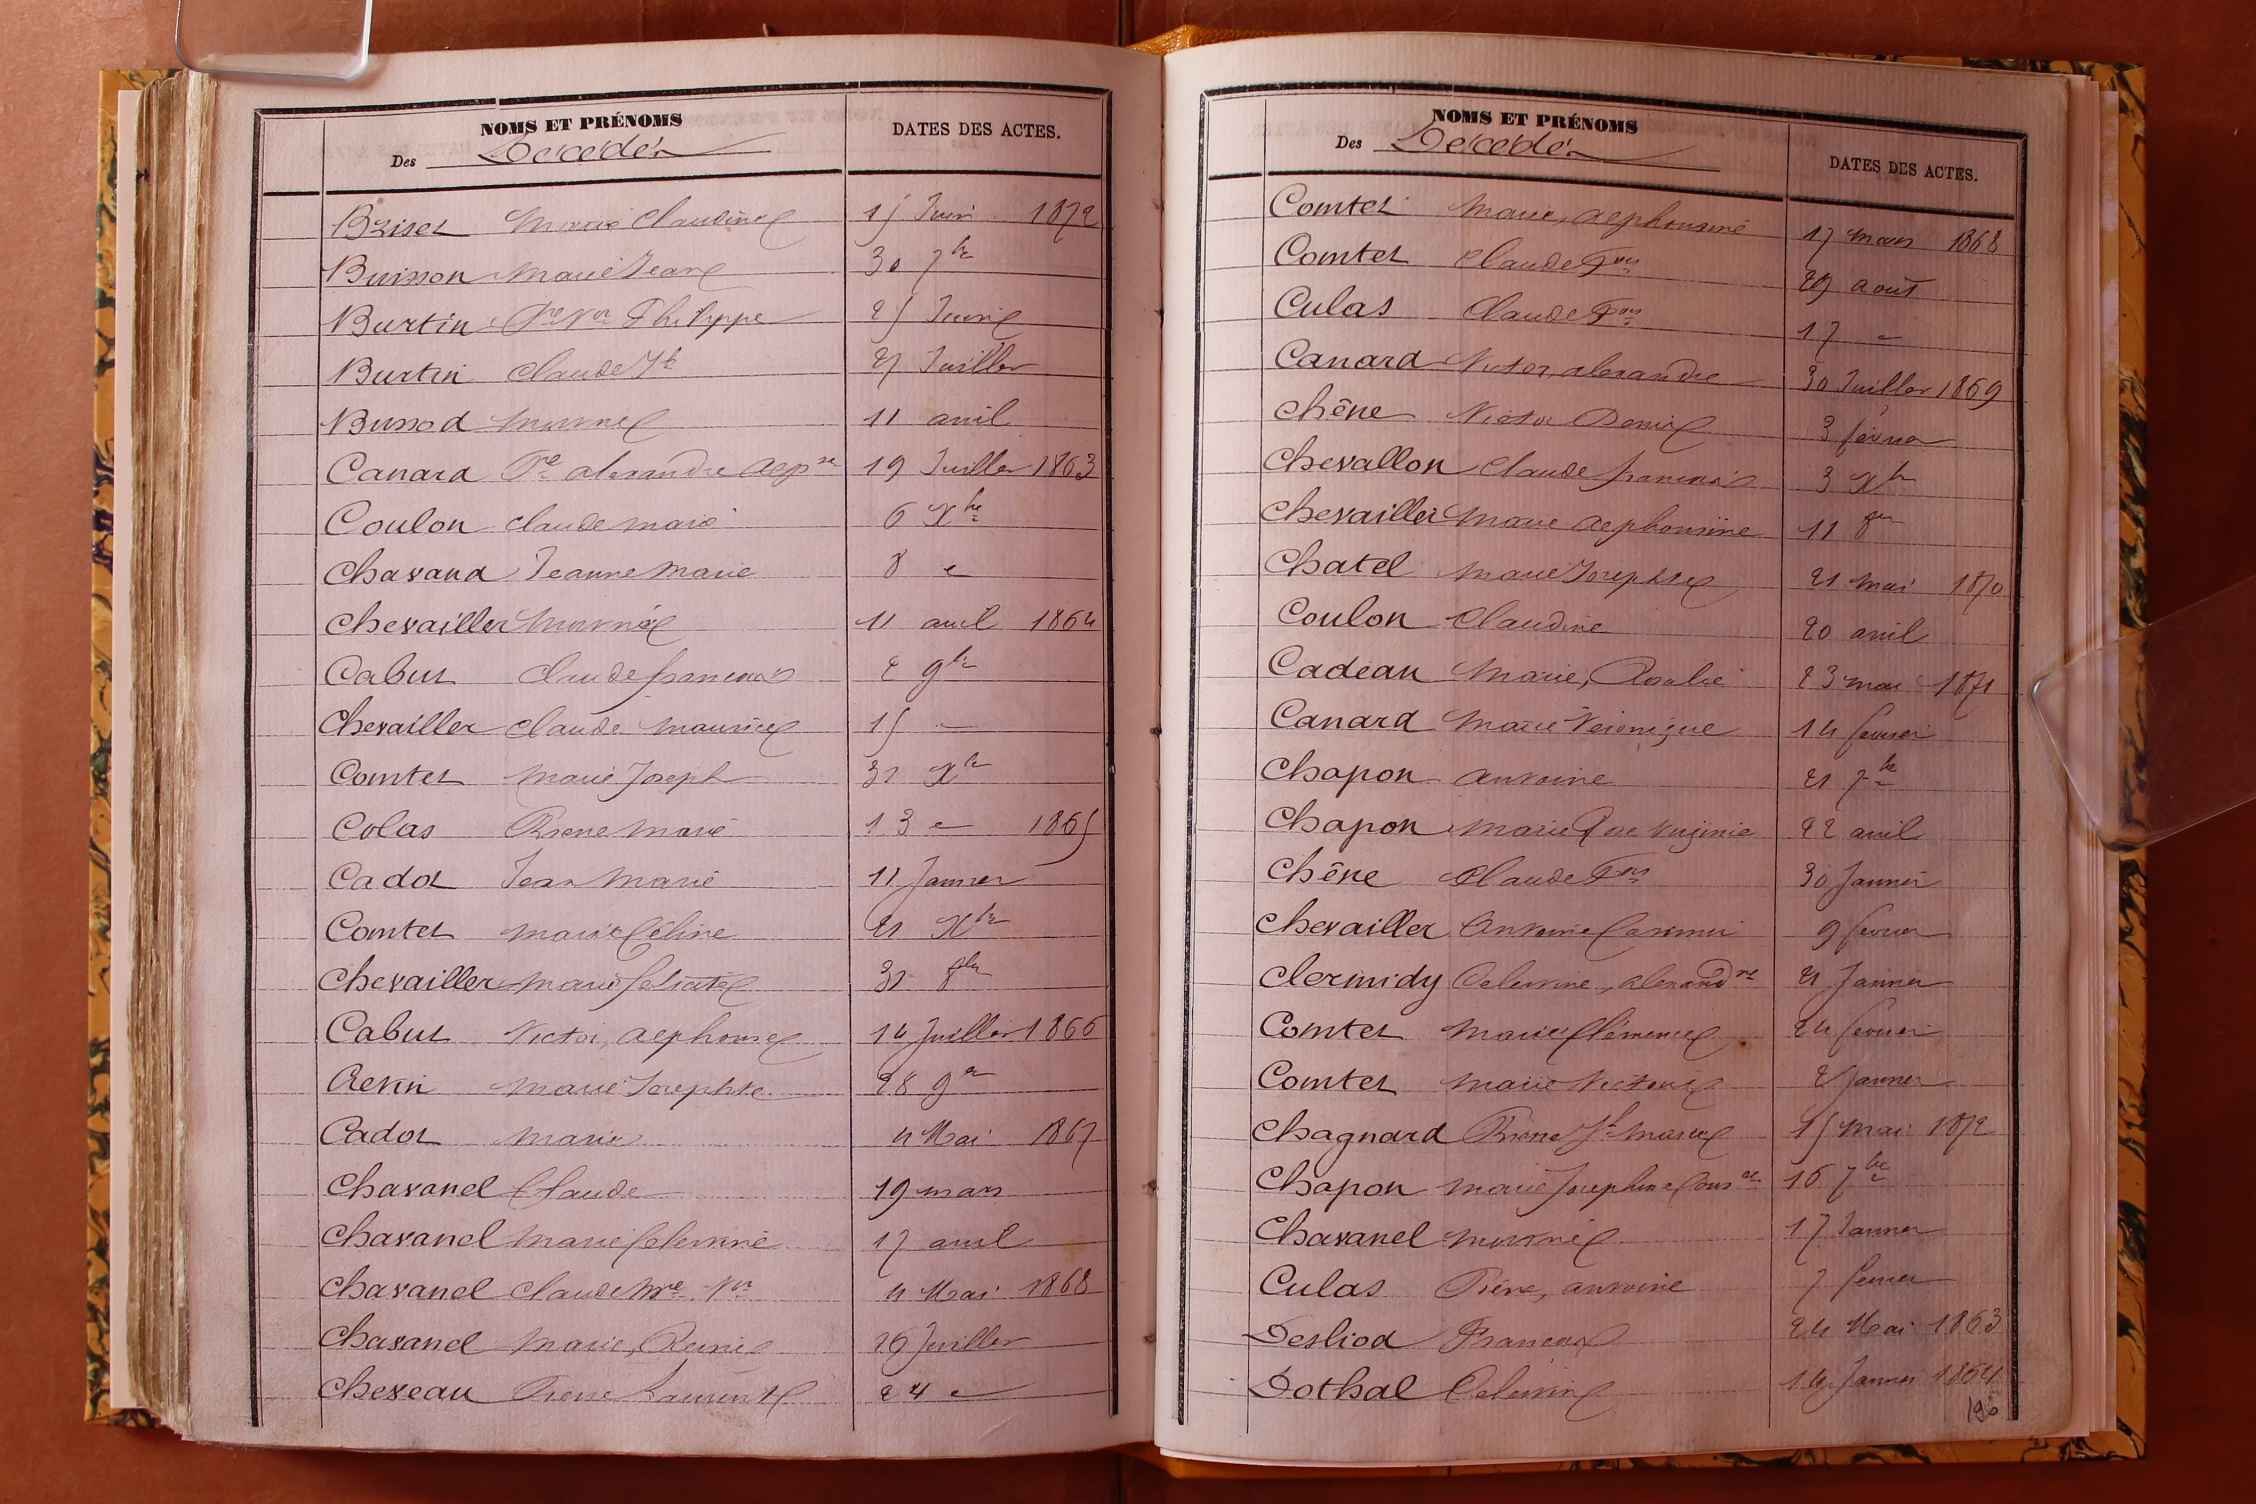 NOMS ET PRÉNOMS
DATES DES ACTES.
Des Décédés
Briset Marie Claudine 15 Juin 1872
Buisson Marie Jean 30 7bre
Burtin Phe Vor Philippe 25 Juin
Burtin Claude Jh 27 Juillet
Bussod mornée 11 avril
Canard Pre alexandre Alpse 19 Juillet 1863
Coulon Claude Marie 6 Xbre
Chavand Jeanne Marie 8 "
Chevailler mornée 11 avril 1864
Cabut Claude françois 2 9bre
Chevailler Claude Maurice 15 "
Comtet Marie Joseph 31 Xbre
Colas Pierre Marie 13 " 1865
Cadot Jean Marie 11 Janvier
Comtet Marie Céline 21 Xbre
Chevailler Marie félicité 31 8bre
Cabut Victor, Alphonse 14 Juillet 1866
Marie Josephte 28 9bre
Cadot Marie 4 Mai 1867
Chavanel Claude 19 mars
Chavanel Marie Célestine 17 avril
Chavanel Claude Mie Vor 4 Mai 1868
Chavanel Marie, Reine 26 Juillet
Cheveau Pierre Laurent 24 "
NOMS ET PRÉNOMS
DATES DES ACTES.
Des Décédés
Comtet Marie, alphonsine 17 mars 1868
Comtet Claude Fois 29 août
Culas Claude Fois 17 "
Canard Victor, alexandre 30 Juillet 1869
Chêne Victor Denis 3 février
Chevallon Claude françois 3 Xbre
Chevailler Marie Alphonsine 11 8bre
Chatel Marie Josephte 21 mai 1870
Coulon Claudine 20 avril
Cadeau Marie, Rosalie 23 mai 1871
Canard Marie Véronique 14 février
Chapon antoine 21 7bre
Chapon Marie Rose Virginie 22 avril
Chêne Claude Fois 30 Janvier
Chevailler Antoine Casimir 9 février
Clermidy Célestine, alexandne 21 Janvier
Comtet Marie Clémence 24 février
Comtet Marie Victoire Janvier
Chagnard Pierre Jh Marie 15 mai 1872
Chapon Marie Joséphine Consce 16 7bre
Chavanel mornée 17 Janvier
Culas Pierre, antoine 7 février
Desliod François 24 Mai 1863
Dothal Célestine 14 Janvier 1864
190